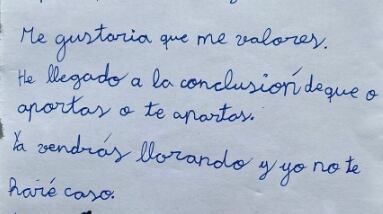 Me gustaria que me valores.
He llegado a la conclusión de que o
aportas o te apartas.
Ya vendrás llorando y yo no te
haré caso.